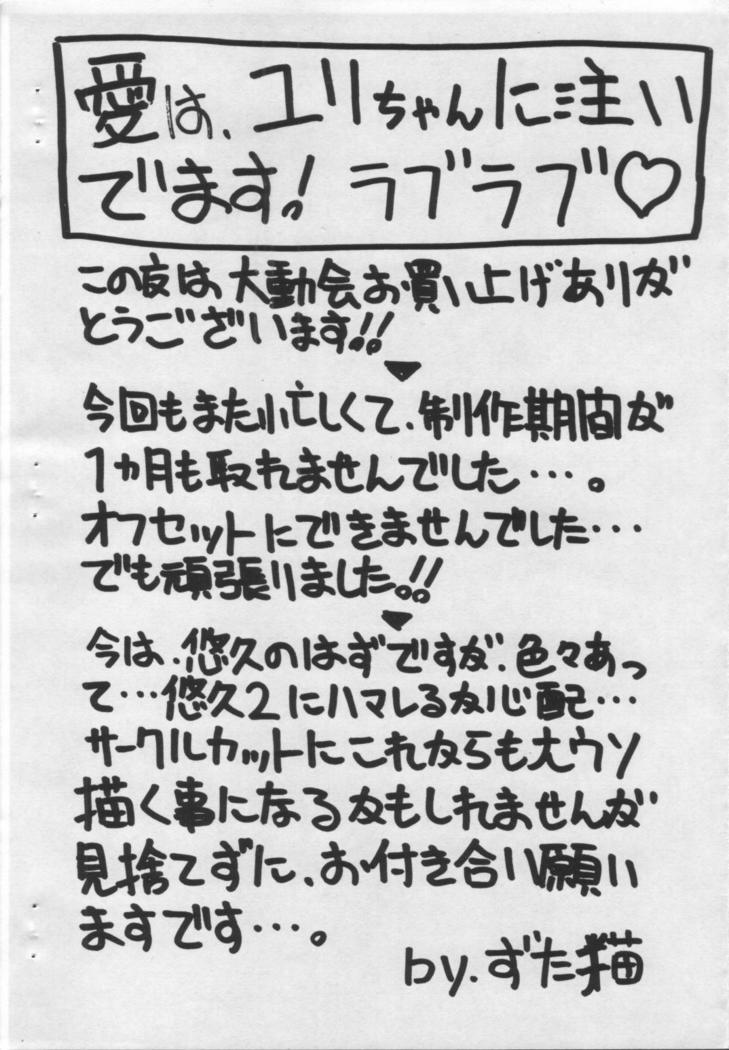 愛は、ユリちゃんに注い
でます！ラブラブ♡
この度は、大動会お買い上げありが
とうございます!!
今回もまた忙しくて、制作期間が
1カ月も取れませんでした…。
オフセットにできませんでした…
でも頑張りました。!!
今は、悠久のはずですが、色々あっ
て…悠久2にハマレるか心配…
サークルカットにこれからも大ウソ
描く事になるかもしれませんが
見捨てずに、お付き合い願い
ますです…。
by.ずた猫